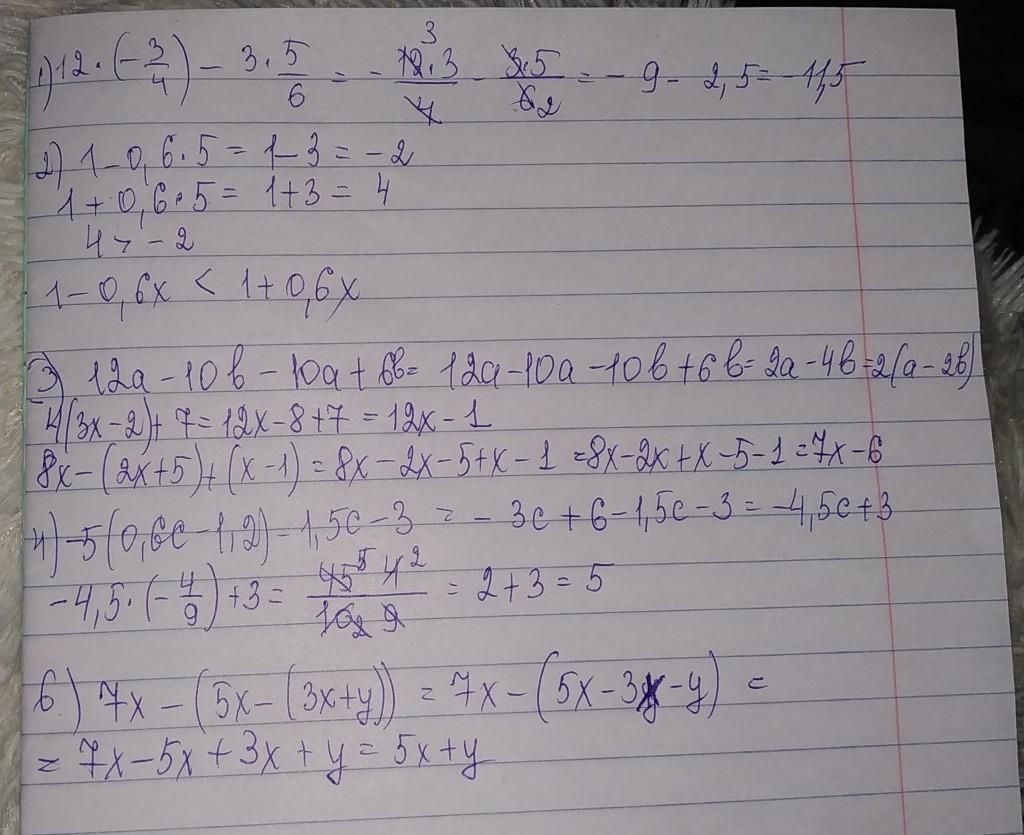 1) 12 · (-3/4) - 3 · 5/6 = - 12·3/4 3 - 3·5/6 2 = - 9 - 2,5 = -11,5
2) 1-0,6·5 = 1-3 = -2
1+0,6·5 = 1+3 = 4
4 > -2
1-0,6x < 1+0,6x
3) 12a-10b-10a+6b= 12a-10a-10b+6b=2a-4b=2(a-2b)
4(3x-2)+7=12x-8+7=12x-1
8x-(2x+5)+(x-1)=8x-2x-5+x-1=8x-2x+x-5-1=7x-6
4) -5(0,6c-1,2)-1,5c-3 = -3c+6-1,5c-3=-4,5c+3
-4,5·(-4/9)+3= 45 5 4 2/10 2 9 = 2+3=5
6) 7x-(5x-(3x+y)) = 7x-(5x-3x-y) =
= 7x-5x+3x+y=5x+y